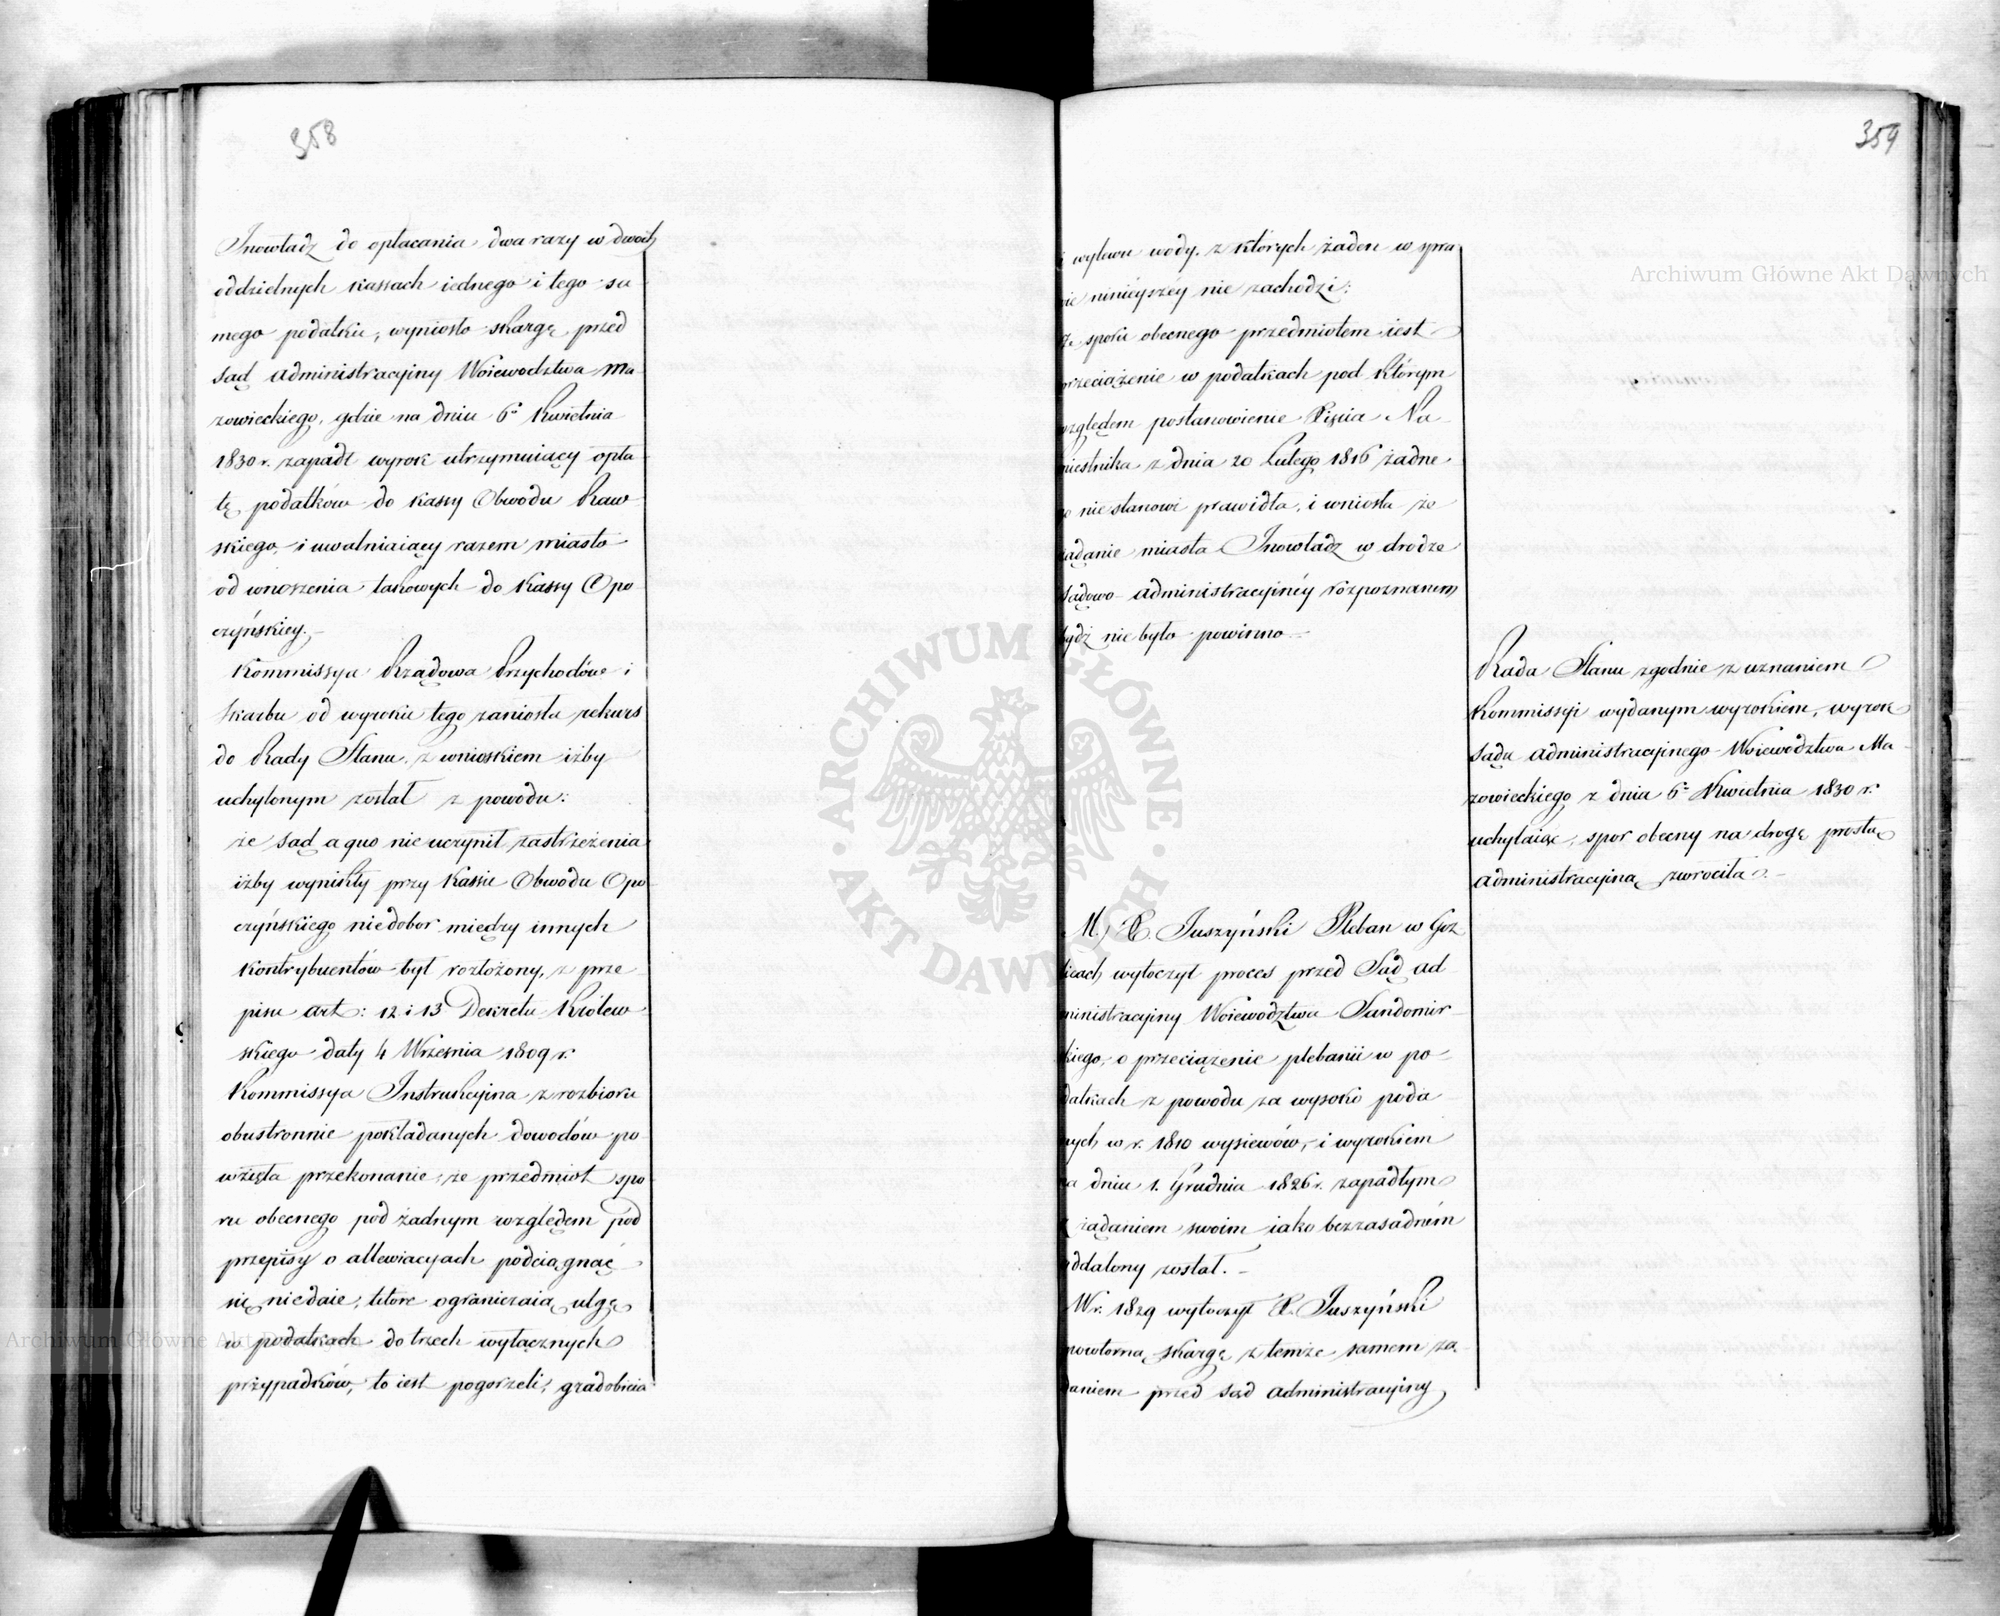 358
Inowłodz do opłacania dwa razy w dwóch
oddzielnych kassach iednego i tego sa
mego podatku, wyniosło skargę przed
Sąd Administracyiny Woiewodztwa Ma
zowieckiego, gdzie na dniu 6º Kwietnia
1830 r. zapadł wyrok utrzymuiący opła
tę podatków do Kassy Obwodu Raw
skiego, i uwalniaiący razem miasto
od wnoszenia takowych do Kassy Opo
czyńskiey. –
Kommissya Rządowa Przychodów i
Skarbu od wyroku tego zaniosła rekurs
do Rady Stanu, z wnioskiem iżby
uchylonym został z powodu:
że Sąd a quo nie uczynił zastrzeżenia
iżby wynikły przy Kassie Obwodu Opo
czyńskiego niedobor między innych
Kontrybuentów był rozłożony, z prze
pisu art: 12 i 13 Dekretu Królew
skiego daty 4 Września 1809 r.
Kommissya Instrukcyina z rozbioru
obustronnie pokładanych dowodów po
wzięła przekonanie, że przedmiot spo
ru obecnego pod żadnym względem pod
przepisy o allewiacyach podciągnąć
się niedaie, które ograniczaią ulgę
w podatkach do trzech wyłącznych
przypadków, to iest pogorzeli, gradobicia
359
i wylewu wody, z których żaden w spra
wie ninieyszéy nie zachodzi:
że sporu obecnego przedmiotem iest
przeciążenie w podatkach pod którym
względem postanowienie Xięcia Na
miestnika z dnia 20 Lutego 1816 żadne
go nie stanowi prawidła, i wniosła że
żądanie miasta Inowłodz w drodze
Sądowo Administracyinéy rozpoznanem
bydź nie było powinno –
Rada Stanu zgodnie z uznaniem
Kommissyi wydanym wyrokiem, wyrok
Sądu Administracyinego Woiewodztwa Ma
zowieckiego z dnia 6º Kwietnia 1830 r.
uchylaiąc, spor obecny na drogę prostą
Administracyiną zwrociła. –
M.) X. Juszyński Pleban w Goz
licach wytoczył proces przed Sąd Ad
ministracyiny Woiewodztwa Sandomir
skiego, o przeciążenie plebanii w po
datkach z powodu za wysoko poda
nych w r. 1810 wysiewów, i wyrokiem
na dniu 1. Grudnia 1826 r. zapadłym
z żądaniem swoim iako bezzasadném
oddalony został. –
W r. 1829 wytoczył X. Juszyński
powtorną skargę z temże samem żą
daniem przed Sąd Administracyiny
Archiwum Główne Akt Dawnych
Archiwum Główne Akt Dawnych
ARCHIWUM GŁÓWNE
AKT DAWNYCH